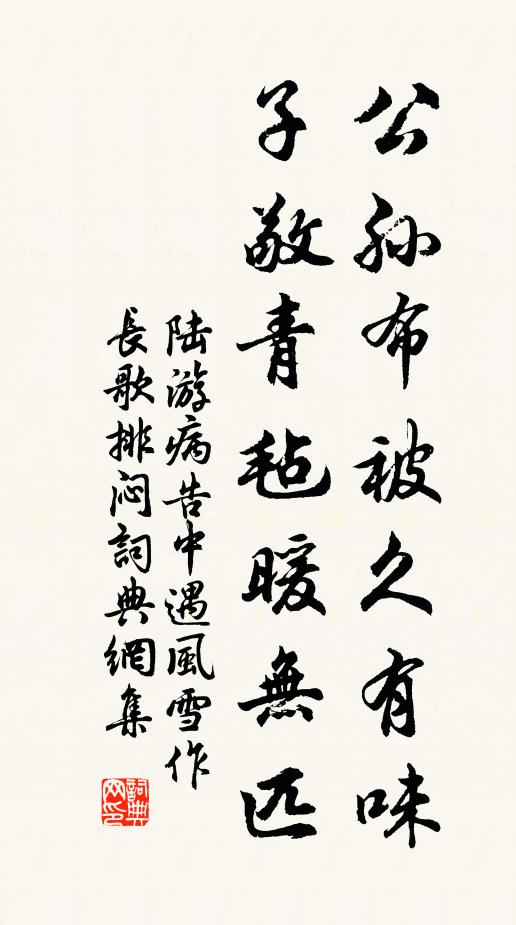 公孙布被久有味
子敬青毡暖無匹
陆游病告中遇風雪作
長歌排闷詞典網集
詞典网印